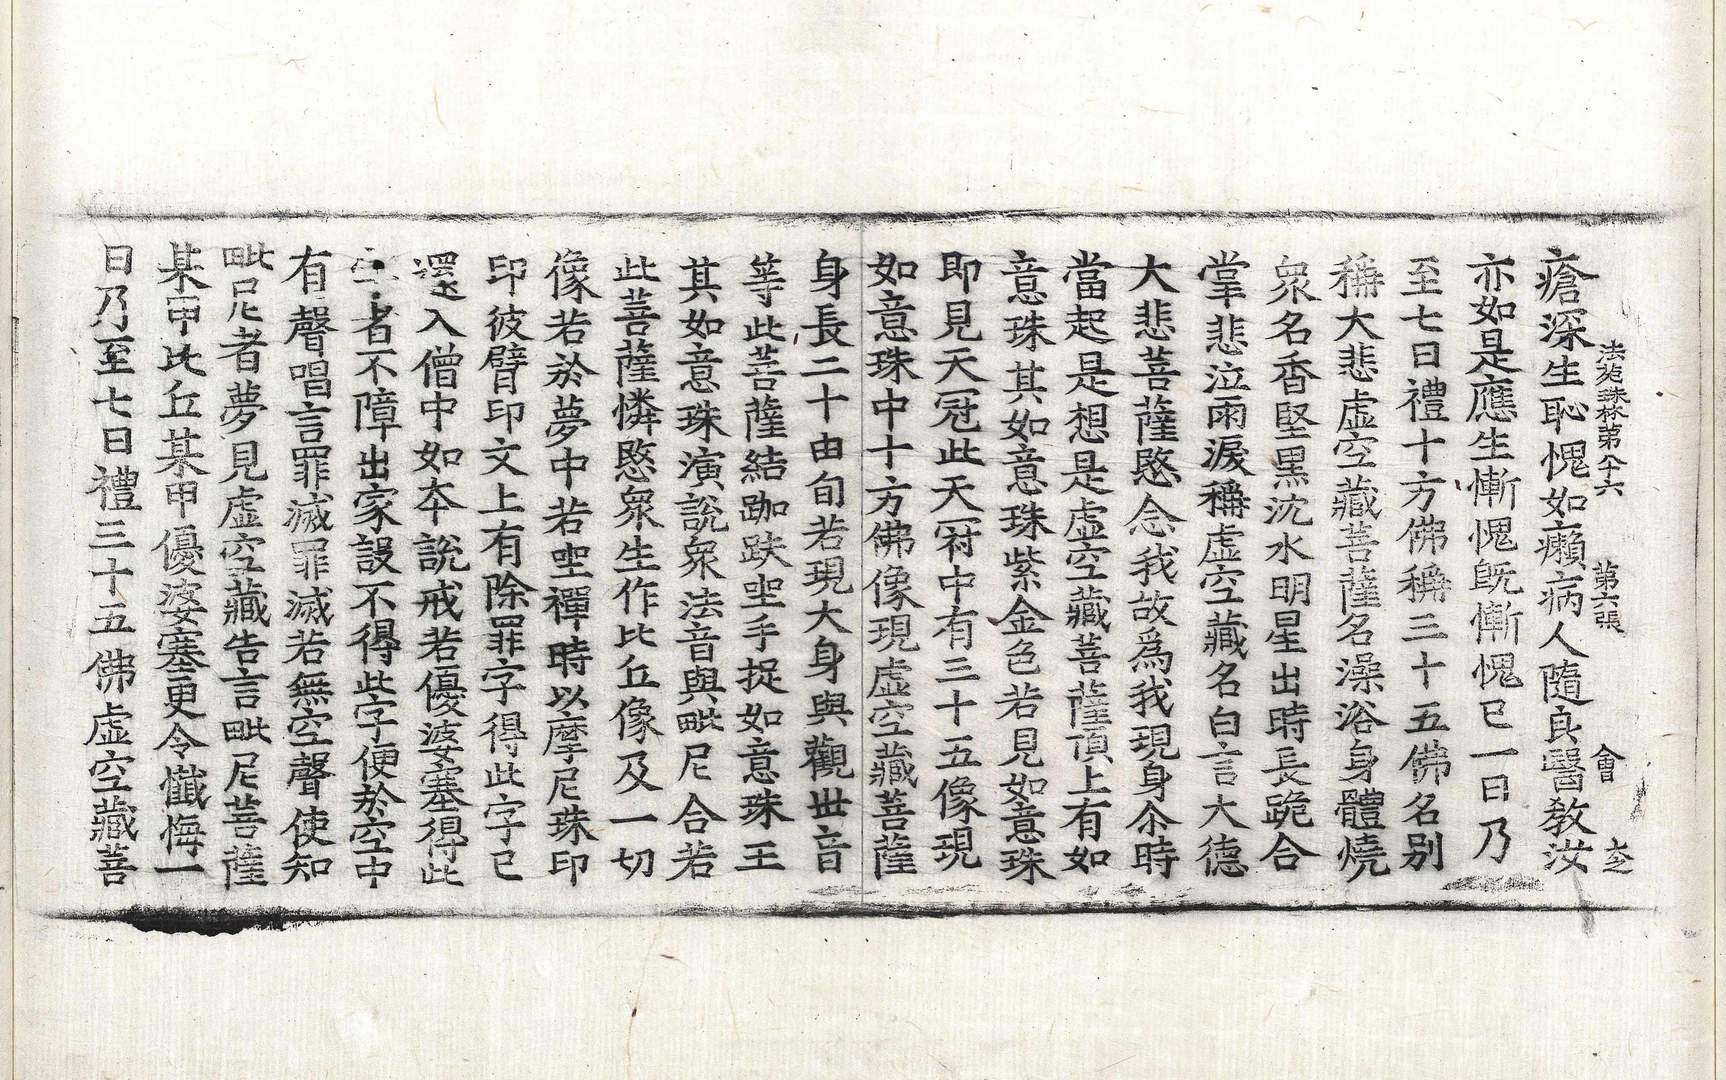 法苑珠林第八十六 第六張 會
瘡深生恥愧如癩病人隨良醫敎汝
亦如是應生慚愧旣慚愧已一日乃
至七日禮十方佛稱三十五佛名別
稱大悲虛空藏菩薩名澡浴身體燒
衆名香堅黑沈水明星出時長跪合
掌悲泣雨淚稱虛空藏名白言大德
大悲菩薩愍念我故爲我現身尒時
當起是想是虛空藏菩薩頂上有如
意珠其如意珠紫金色若見如意珠
卽見天冠此天冠中有三十五像現
如意珠中十方佛像現虛空藏菩薩
身長二十由旬若現大身與觀世音
等此菩薩結跏趺坐手捉如意珠王
其如意珠演說衆法音與毗尼合若
此菩薩憐愍衆生作比丘像及一切
像若於夢中若坐禪時以摩尼珠印
印彼臂印文上有除罪字得此字已
還入僧中如本說戒若優婆塞得此
字者不障出家設不得此字便於空中
有聲唱言罪滅罪滅若無空聲使知
毗尼者夢見虛空藏告言毗尼菩薩
某甲比丘某甲優婆塞更令懺悔一
日乃至七日禮三十五佛虛空藏菩